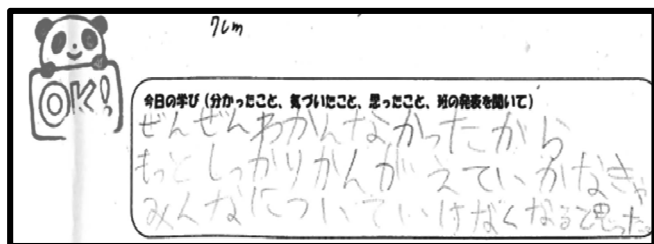 7cm
OK!
今日の学び（分かったこと、気づいたこと、思ったこと、班の発表を聞いて）
ぜんぜんわかんなかったから
もっとしっかりかんがえていかなきゃ
みんなについていけなくなると思った。